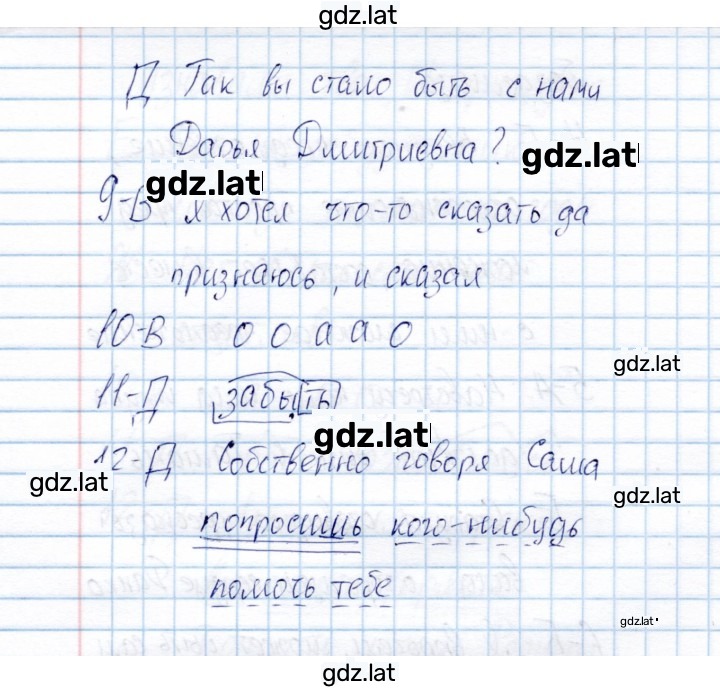 gdz.lat
Д Так вы стало быть с нами
Дарья Дмитриевна?
gdz.lat
gdz.lat
9-В Я хотел что-то сказать да
признаюсь, и сказал
10-В о о а а о
gdz.lat
11-Д забыть
gdz.lat
12-Д Собственно говоря Саша
gdz.lat
gdz.lat
попросишь кого-нибудь
помочь тебе
gdz.lat
gdz.lat